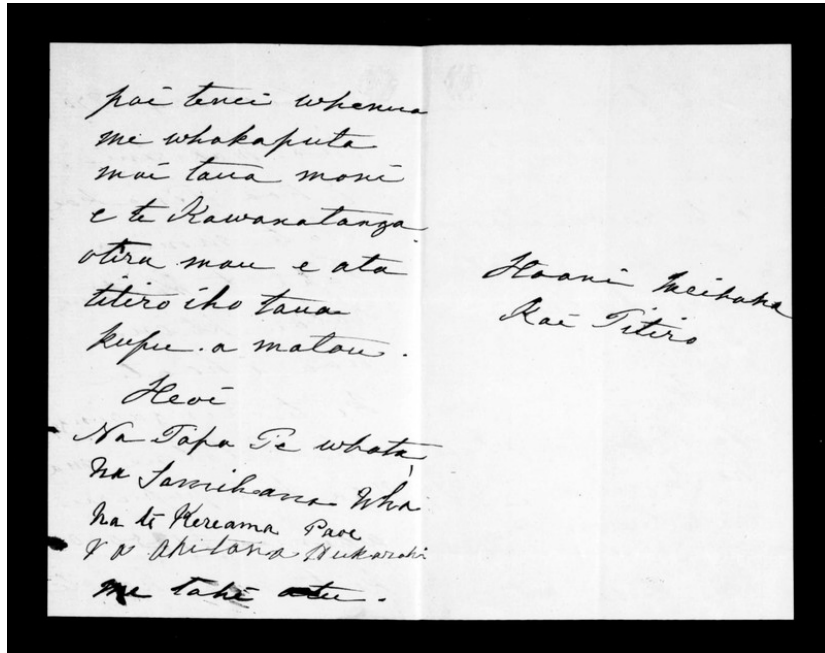 pai tenei whenua
me whakaputa
mai taua moni
e te Kawanatanga
otira mau e ata
titiro iho taua
kupu. a matou.
Heoi
Na Tapa Te whata,
na Tamihana Wha
na te Kereama Paoe
Na Akitana Hukaraki
me tahi atu.
Hoani Meihana
Kai Titiro